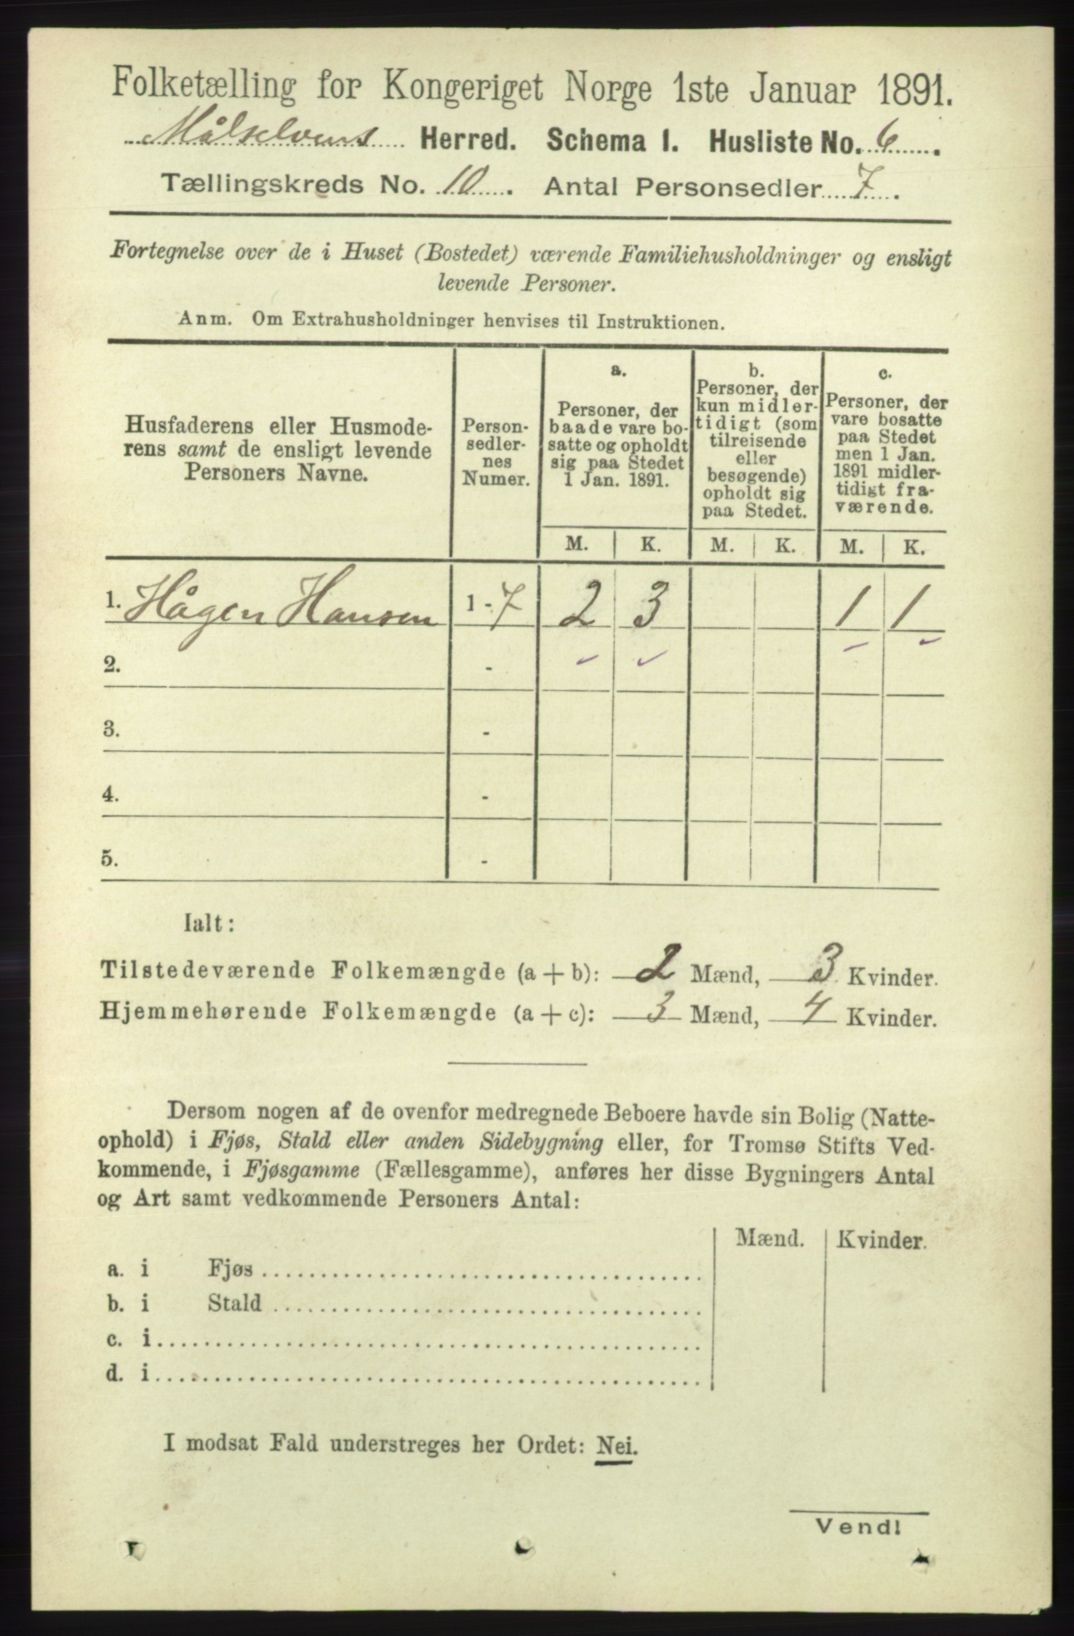 Folketælling for Kongeriget Norge 1ste Januar 1891.
Målselvens Herred. Schema I. Husliste No. 6.
Tællingskreds No. 10. Antal Personsedler 7.
Fortegnelse over de i Huset (Bostedet) værende Familiehusholdninger og ensligt
levende Personer.
Anm. Om Extrahusholdninger henvises til Instruktionen.
Husfaderens eller Husmode-
rens samt de ensligt levende
Personers Navne.
Person-
sedler-
nes
Numer.
a.
Personer, der
baade vare bo-
satte og opholdt
sig paa Stedet
1 Jan. 1891.
b.
Personer, der
kun midler-
tidigt (som
tilreisende
eller
besøgende)
opholdt sig
paa Stedet.
c.
Personer, der
vare bosatte
paa Stedet
men 1 Jan.
1891 midler-
tidigt fra-
værende.
M. K. M. K. M. K.
1. Hågen Hansen 1 - 7 2 3 1 1
2. -
3. -
4. -
5. -
Ialt:
Tilstedeværende Folkemængde (a + b): 2 Mænd, 3 Kvinder.
Hjemmehørende Folkemængde (a + c): 3 Mænd, 4 Kvinder.
Dersom nogen af de ovenfor medregnede Beboere havde sin Bolig (Natte-
ophold) i Fjøs, Stald eller anden Sidebygning eller, for Tromsø Stifts Ved-
kommende, i Fjøsgamme (Fællesgamme), anføres her disse Bygningers Antal
og Art samt vedkommende Personers Antal:
Mænd. Kvinder.
a. i Fjøs
b. i Stald
c. i
d. i
I modsat Fald understreges her Ordet: Nei.
Vend!